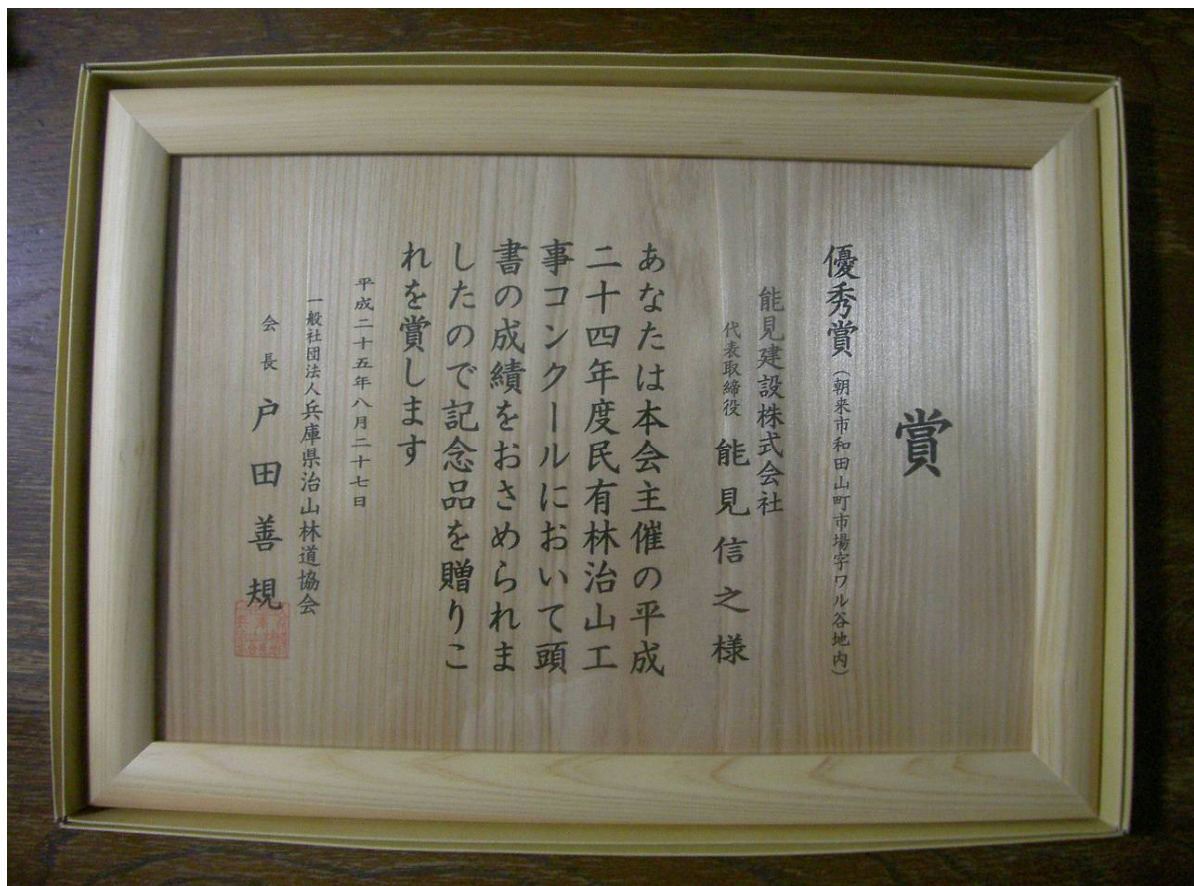 賞
優秀賞（朝来市和田山町市場字ワル谷地内）
能見建設株式会社
代表取締役 能見信之様
あなたは本会主催の平成
二十四年度民有林治山工
事コンクールにおいて頭
書の成績をおさめられま
したので記念品を贈りこ
れを賞します
平成二十五年八月二十七日
一般社団法人兵庫県治山林道協会
会長 戸田善規